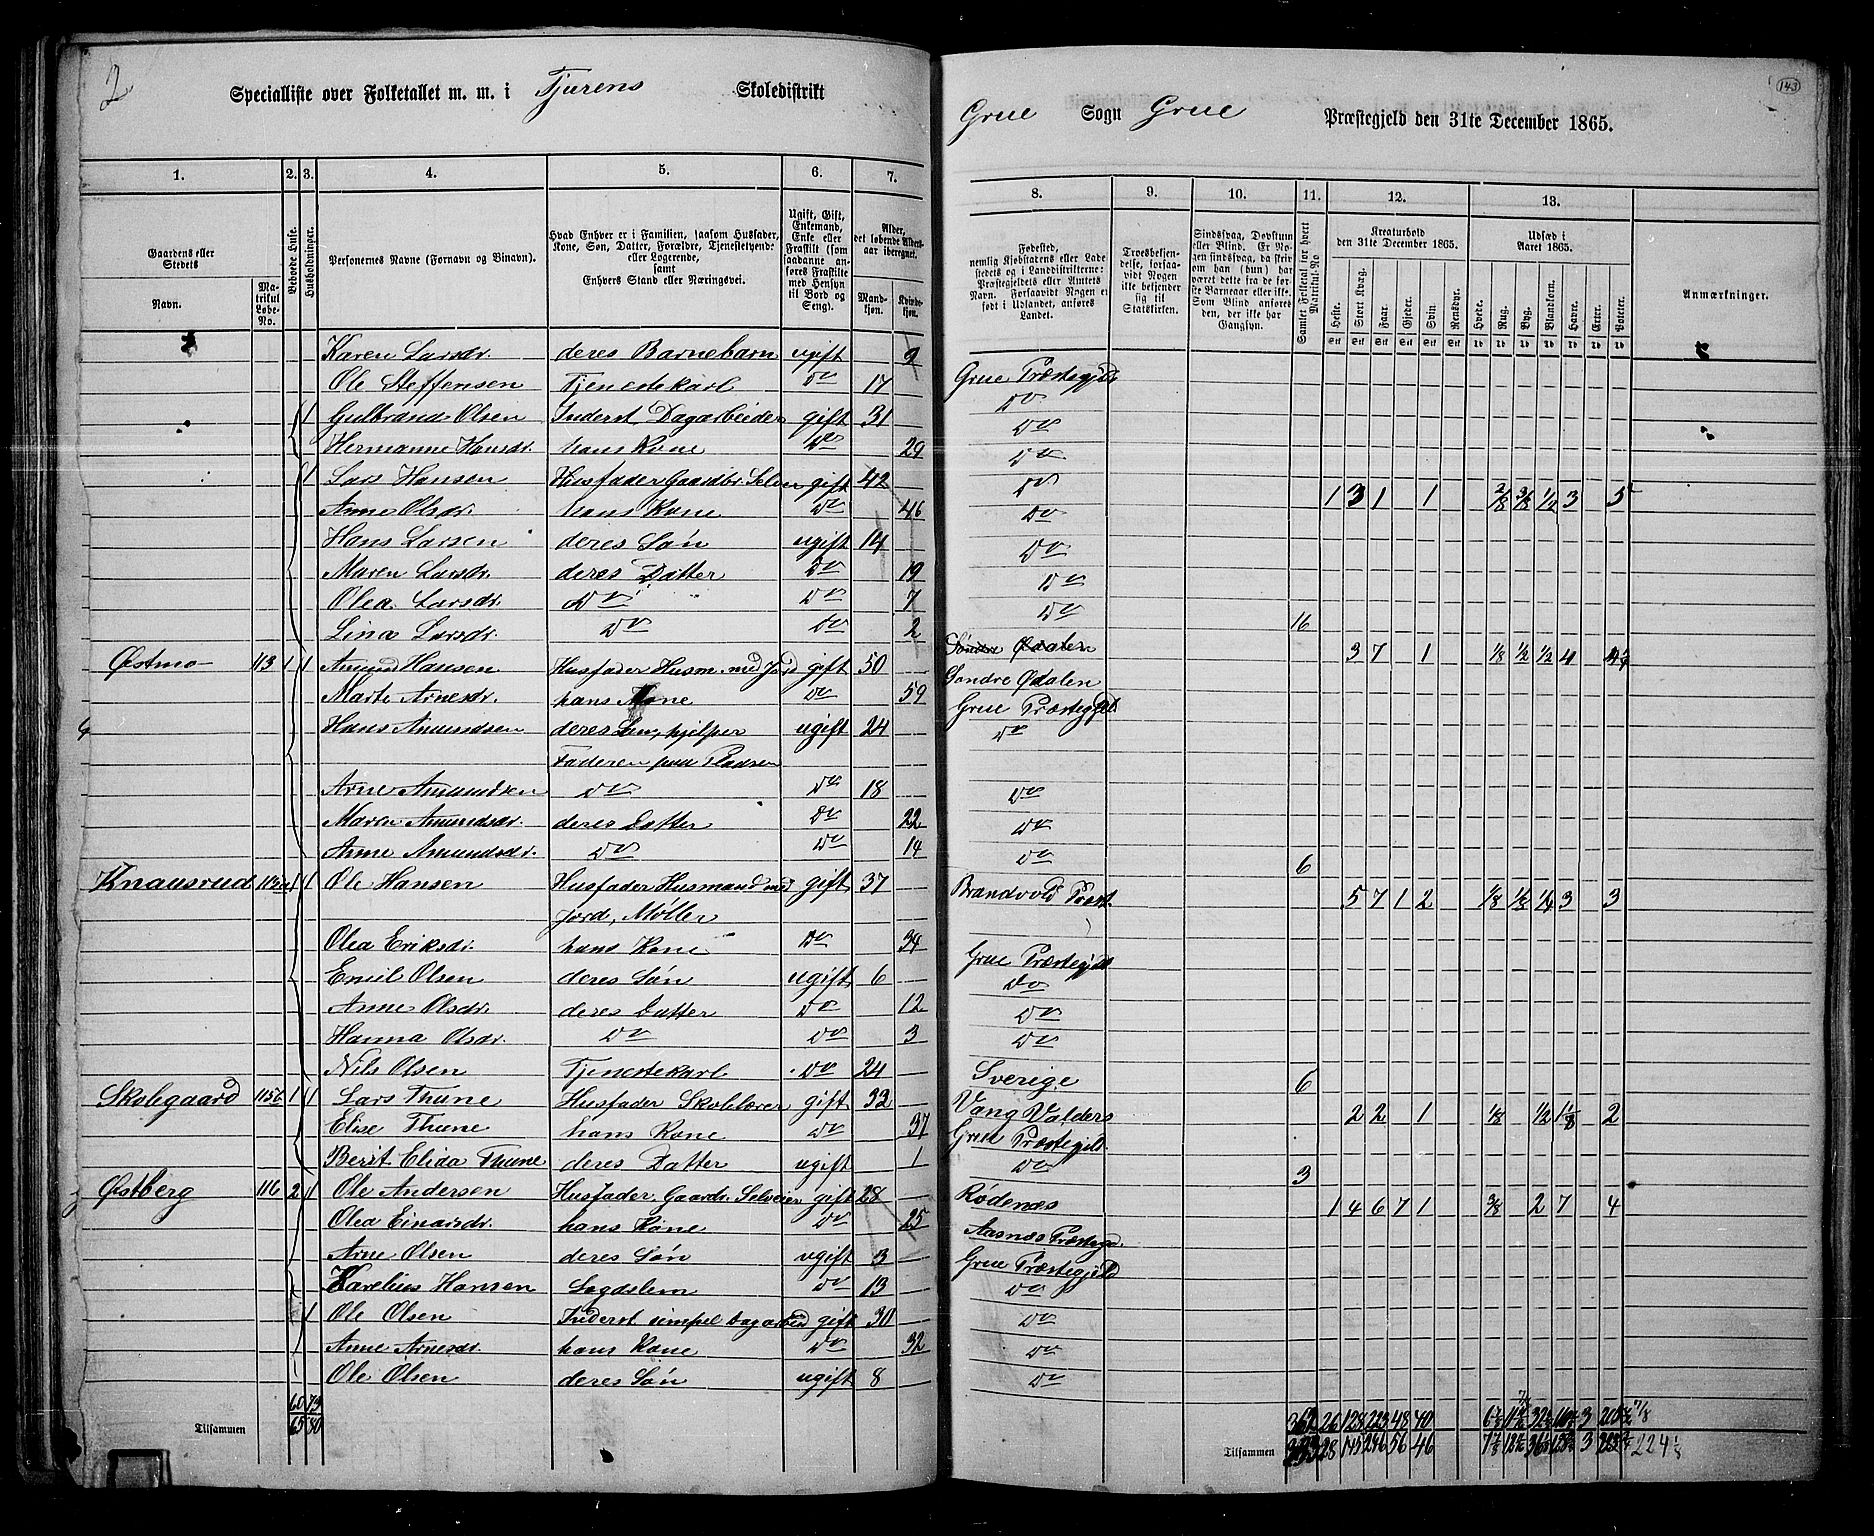 2
Specialliste over Folketallet m. m. i Tjurens Skoledistrikt
Grue Sogn Grue Præstegjeld den 31te December 1865.
143
1. 2. 3. 4. 5. 6. 7.
8. 9. 10. 11. 12. 13.
Gaardens eller Stedets
Navn.
Matrikul Løbe-No.
Beboede Huse.
Husholdninger.
Personernes Navne (Fornavn og Binavn).
Hvad Enhver er i Familien, saasom Husfader, Kone, Søn, Datter, Forældre, Tjenestetyende eller Logerende, samt Enhvers Stand eller Næringsvei.
Ugift, Gift, Enkemand, Enke eller Fraskilt (som saadanne anføres Fraskilte med Hensyn til Bord og Seng).
Alder, det løbende Alders-aar iberegnet.
Mandkjøn. Kvindekjøn.
Fødested, nemlig Kjøbstadens eller Ladestedets og i Landdistrikterne: Præstegjeldets eller Amtets Navn. Forsaavidt Nogen er født i Udlandet, anføres Landet.
Troesbekjendelse, forsaavidt Nogen ikke bekjender sig til Statskirken.
Sindssvag, Døvstum eller Blind. Er Nogen sindssvag, da skriv om han (hun) har været dette fra de første Barneaar eller ikke. Som Blind anføres den, der ikke har Gangsyn.
Samlet Folketal for hvert Matrikul-No
Kreaturhold den 31te December 1865.
Heste. Stort Kvæg. Faar. Gjeder. Svin. Rensdyr.
Udsæd i Aaret 1865.
Hvede. Rug. Byg. Blandkorn. Havre. Erter. Poteter.
Anmærkninger.
Karen Larsdr. deres Barnebarn ugift 9 Grue Præstegjeld
Ole Steffensen Tjenestekarl Do 17 Do
1 Gulbrand Olsen Inderst, Dagarbeider gift 31 Do
Hermanne Hansdr. hans Kone Do 29 Do
1 Lars Hansen Husfader Gaardbr. Selveier gift 42 Do 1 3 1 1 2/8 3/8 1/2 3 5
Anne Olsdr. hans Kone Do 46 Do
Hans Larsen deres Søn ugift 14 Do
Maren Larsdr. deres Datter Do 19 Do
Olea Larsdr. Do Do 7 Do
Lina Larsdr. Do Do 2 16
Østmo 113 1 1 Amund Hansen Husfader Husm. med Jord gift 50 Søndre Ødalen 3 7 1 1/8 1/2 1/2 4
Marte Arnesdr. hans Kone Do 59 Søndre Ødalen
Hans Amundsen deres Søn, hjelper ugift 24 Grue Præstegjeld Do
Faderen paa Pladsen
Arne Amundsen Do Do 18 Do
Maren Amundsdr. deres Datter Do 22 Do
Anne Amundsdr. Do Do 14 Do 6
Knausrud 115a 1 1 Ole Hansen Husfader Husmand med gift 37 Brandvold Præst. 5 7 1 2 1/8 1/8 1/4 3 3
Jord, Møller
Olea Eriksdr. hans Kone Do 34 Grue Præstegjeld
Emil Olsen deres Søn ugift 6 Do
Anne Olsdr. deres Datter Do 12 Do
Hanna Olsdr. Do Do 3 Do
Nils Olsen Tjenestekarl Do 24 Sverige 6
Skolegaard 115b 1 1 Lars Thune Husfader Skolelærer gift 32 Vang Valders 2 2 1 1/8 1/2 1 1/8 2
Elise Thune hans Kone Do 37 Grue Præstegjeld
Berit Elida Thune deres Datter ugift 1 Do 3
Østberg 116 2 1 Ole Andersen Husfader, Gaardbr. Selveier gift 28 Rødenæs 1 4 6 7 1 3/8 2 7 4
Olea Einarsdr. hans Kone Do 25 Aasnæs Præstegj.
Arne Olsen deres Søn ugift 3 Grue Præstegjeld
Karelius Hansen Lægdslem Do 13 Do
1 Ole Olsen Inderst simpel Dagarbeid gift 30 Do
Anne Arnesdr. hans Kone Do 32 Do
Ole Olsen deres Søn ugift 8 Do
60 73
Tilsammen 65 80
362 26 128 223 48 40
Tilsammen 28 145 246 56 46 3 224 1/8